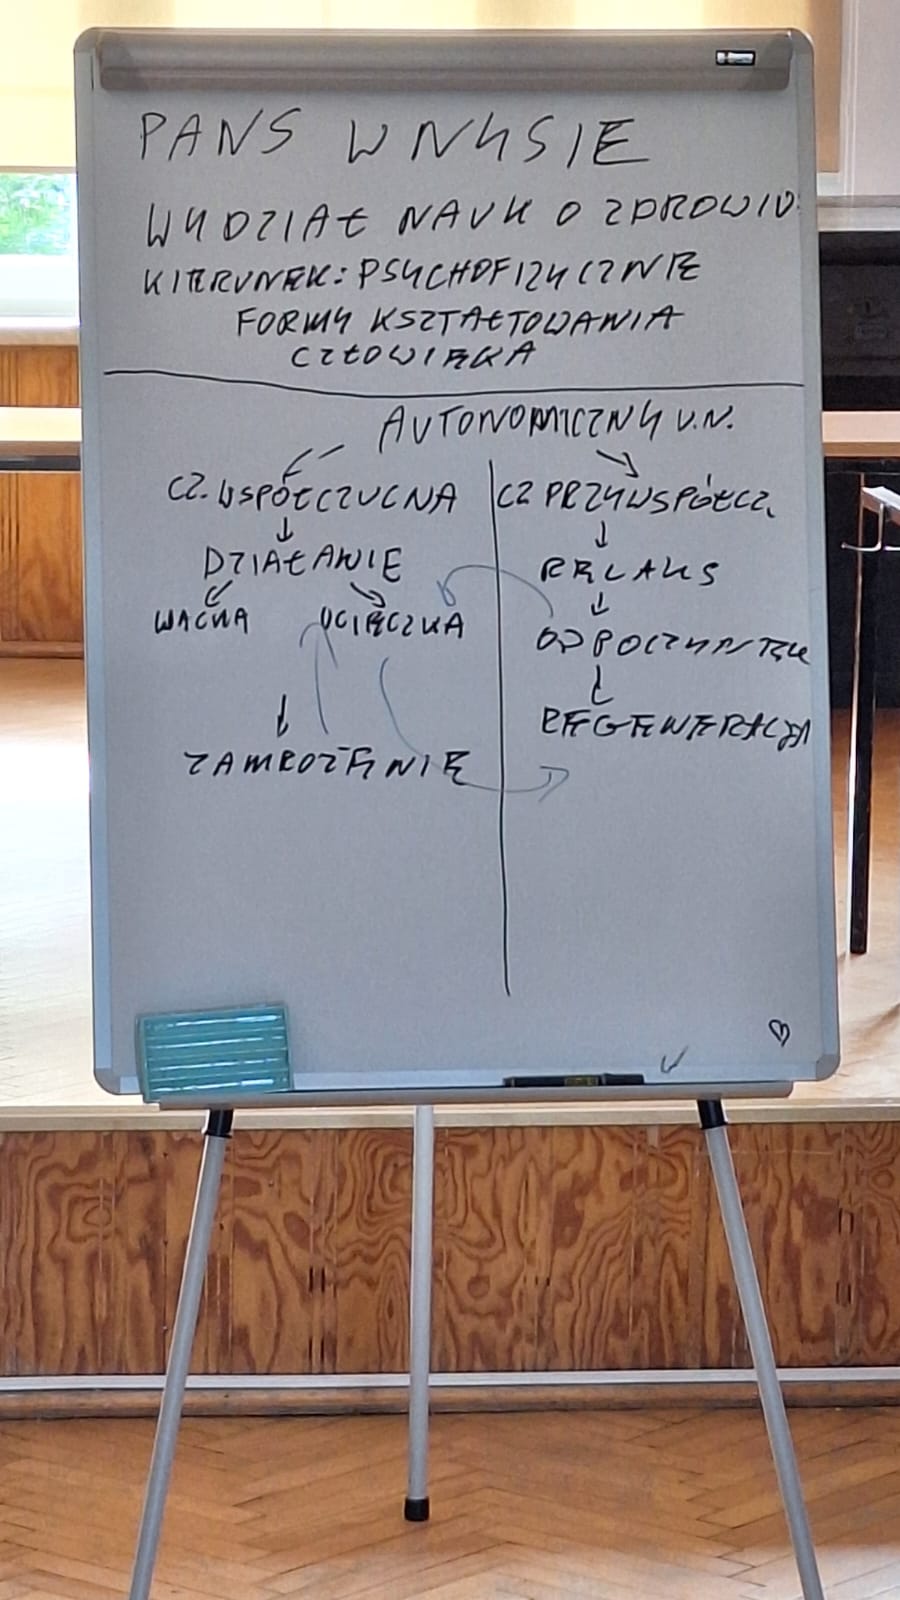 PANS W NYSIE
WYDZIAŁ NAUK O ZDROWIU
KIERUNEK: PSYCHOFIZYCZNE
FORMY KSZTAŁTOWANIA
CZŁOWIEKA
AUTONOMICZNY U.N.
CZ. WSPÓŁCZUCNA
DZIAŁANIE
WALKA UCIECZKA
ZAMROŻENIE
CZ PRZYWSPÓŁCZ.
RELAKS
ODPOCZYNEK
REGENERACJA